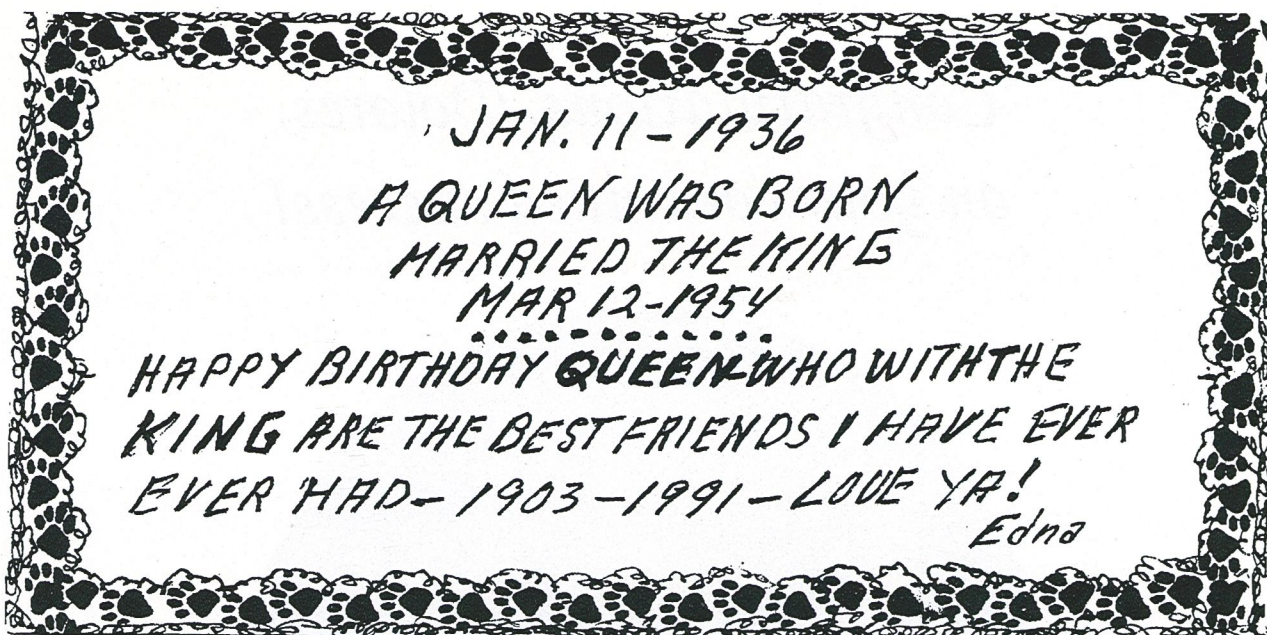 JAN. 11-1936
A QUEEN WAS BORN
MARRIED THE KING
MAR 12-1954
HAPPY BIRTHDAY QUEEN-WHO WITH THE
KING ARE THE BEST FRIENDS I HAVE EVER
EVER HAD- 1903-1991- LOVE YA!
Edna